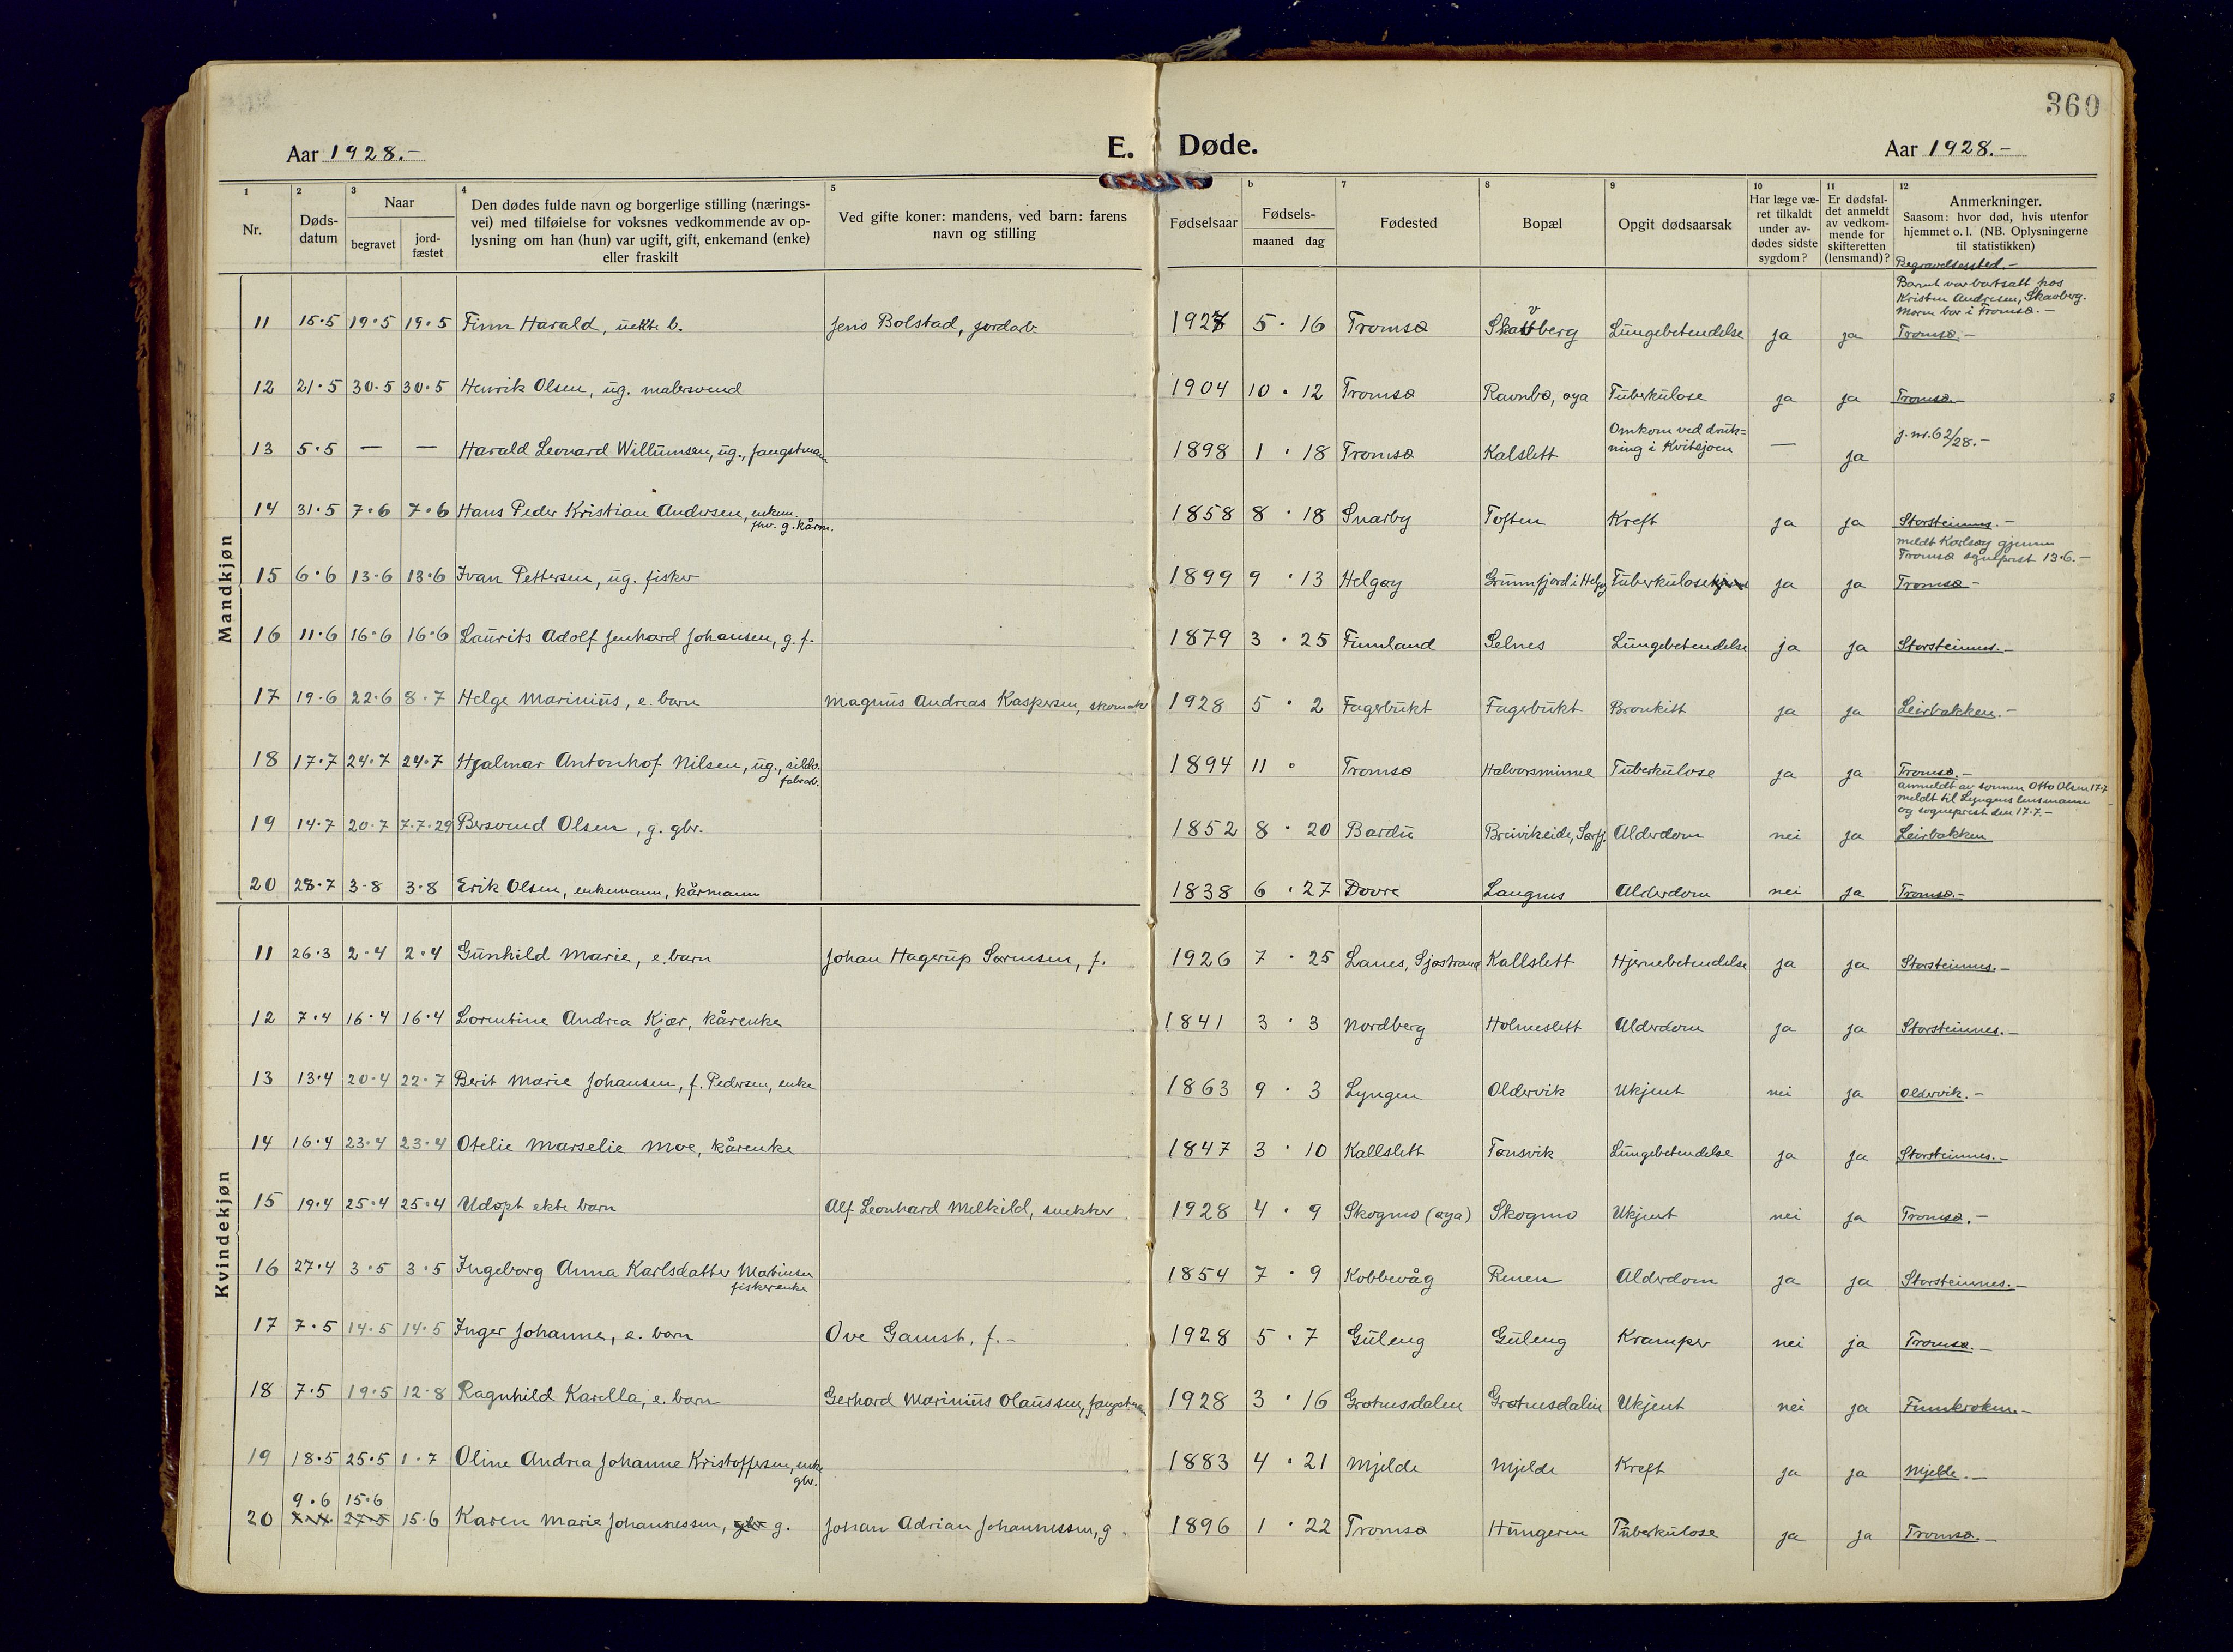 360
Aar 1928.-
E. Døde.
Aar 1928.-
1 2 3 4 5 b 7 8 9 10 11 12
Nr.
Døds-
datum
Naar
begravet
jord-
fæstet
Den dødes fulde navn og borgerlige stilling (nærings-
vei) med tilføielse for voksnes vedkommende av op-
lysning om han (hun) var ugift, gift, enkemand (enke)
eller fraskilt
Ved gifte koner: mandens, ved barn: farens
navn og stilling
Fødselsaar
Fødsels-
maaned dag
Fødested
Bopæl
Opgit dødsaarsak
Har læge væ-
ret tilkaldt
under av-
dødes sidste
sygdom?
Er dødsfal-
det anmeldt
av vedkom-
mende for
skifteretten
(lensmand)?
Anmerkninger.
Saasom: hvor død, hvis utenfor
hjemmet o. l. (NB. Oplysningerne
til statistikken)
Begravelsessted.-
Mandkjøn
Barnet var bortsatt hos
Kristen Andresen, Skavberg.
Moren bor i Tromsø.-
11 15.5 19.5 19.5 Finn Harald, uekte b. Jens Bolstad, jordarb. 1927 5 . 16 Tromsø Skavberg Lungebetendelse ja ja Tromsø-
12 21.5 30.5 30.5 Henrik Olsen, ug. malersvend 1904 10 . 12 Tromsø Ravnbø, øya Tuberkulose ja ja Tromsø-
13 5.5 — — Harald Leonard Willumsen, ug., fangstmann 1898 1 . 18 Tromsø Kalslett Omkom ved druk=
ning i Kvitsjøen — ja j.nr. 62/28.-
14 31.5 7.6 7.6 Hans Peder Kristian Andersen, enkem.
fhv. g. kårm. 1858 8 . 18 Snarby Toften Kreft ja ja Storsteinnes.-
meldt Karlsøy gjennem
Tromsø sogneprest 13.6.-
15 6.6 13.6 13.6 Ivan Pettersen, ug. fisker 1899 9 . 13 Helgøy Grunnfjord i Helgøy Tuberkulose ja ja Tromsø-
16 11.6 16.6 16.6 Laurits Adolf Jenhard Johansen, g. f. 1879 3 . 25 Finnland Selnes Lungebetendelse ja ja Storsteinnes.-
17 19.6 22.6 8.7 Helge Marinius, e. barn Magnus Andreas Kaspersen, skomaker 1928 5 . 2 Fagerbukt Fagerbukt Bronkitt ja ja Leirbakken.-
18 17.7 24.7 24.7 Hjalmar Antonhof Nilsen, ug., sildo.
fabrarb. 1894 11 . Tromsø Halvorsminne Tuberkulose ja ja Tromsø.-
anmeldt av sønnen Otto Olsen 17.7
meldt til Lyngens lensmann
og sogneprest den 17.7.-
19 14.7 20.7 7.7.29 Bersvend Olsen, g. gbr. 1852 8 . 20 Bardu Breivikeide, Sørfj. Alderdom nei ja Leirbakken
20 28.7 3.8 3.8 Erik Olsen, enkemann, kårmann 1838 6 . 27 Dovre Langnes Alderdom nei ja Tromsø.-
Kvindekjøn
11 26.3 2.4 2.4 Gunhild Marie, e. barn Johan Hagerup Sørensen, f. 1926 7 . 25 Lanes, Sjøstrand Kallslett Hjernebetendelse ja ja Storsteinnes.-
12 7.4 16.4 16.4 Lorentine Andrea Kjær, kårenke 1841 3 . 3 Nordberg Holmeslett Alderdom ja ja Storsteinnes.-
13 13.4 20.4 22.7 Berit Marie Johansen, f. Pedersen, enke 1863 9 . 3 Lyngen Oldervik Ukjent nei ja Oldervik.-
14 16.4 23.4 23.4 Otelie Marselie Moe, kårenke 1847 3 . 10 Kallslett Tønsvik Lungebetendelse ja ja Storsteinnes.-
15 19.4 25.4 25.4 Udøpt ekte barn Alf Leonhard Melkild, snekker 1928 4 . 9 Skogmo (øya) Skogmo Ukjent nei ja Tromsø.-
16 27.4 3.5 3.5 Ingeborg Anna Karlsdatter Martinsen
fiskerenke 1854 7 . 9 Kobbevåg Renen Alderdom ja ja Storsteinnes.-
17 7.5 14.5 14.5 Inger Johanne, e. barn Ove Gamst, f.- 1928 5 . 7 Guleng Guleng Kramper nei ja Tromsø.-
18 7.5 19.5 12.8 Ragnhild Karella, e. barn Gerhard Marinius Olaussen, fangstman 1928 3 . 16 Grøtnesdalen Grøtnesdalen Ukjent nei ja Finnkroken-
19 18.5 25.5 1.7 Oline Andrea Johanne Kristoffersen, enke
gbr. 1883 4 . 21 Mjelde Mjelde Kreft ja ja Mjelde.-
9.6 15.6
20 15.6 Karen Marie Johannessen, g. Johan Adrian Johannessen, g. 1896 1 . 22 Tromsø Hungeren Tuberkulose ja ja Tromsø.-